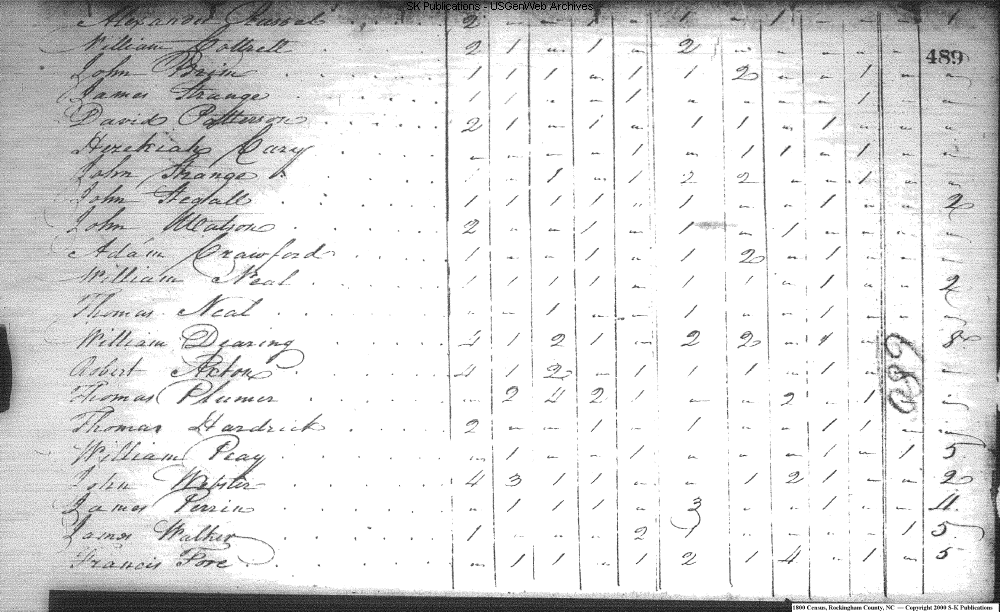 SK Publications - USGenWeb Archives
489
William Cottrell 2 1 " 1 " 2 " " " " " "
John Brim 1 1 1 " 1 1 2 " " 1 " "
James Strange 1 1 " " 1 " " " " 1 " "
David Patterson 2 1 " 1 " 1 1 " 1 " " "
Hezekiah Cary " " " " 1 " 1 1 " 1 " "
John Strange 1 " 1 " 1 2 2 " " 1 " "
John Tedall 1 1 1 1 " 1 " " 1 " " 2
John Watson 2 " " 1 " 1 " 1 " " " "
Adam Crawford 1 " " 1 " 1 2 " 1 " " "
William Neal 1 1 1 1 " 1 1 " 1 " " 2
Thomas Neal " " 1 " " 1 " " 1 " " "
William Dearing 4 1 2 1 " 2 2 " 1 " " 8
Robert Axton 4 1 2 " 1 1 1 1 " 1 "
Thomas Plumer " 2 4 2 1 " " 2 " 1 "
Thomas Hardrick 2 " " 1 " 1 " " 1 1 "
William Peay " 1 " " 1 " " " 1 " 1 5
John Webster 4 3 1 1 " " 1 2 1 " " 2
James Perrin " 1 1 1 " 3 " " 1 " " 4
James Walker 1 " " " 2 1 " " " " 1 5
Francis Pore " 1 1 1 1 2 1 4 " 1 " 5
689
1800 Census, Rockingham County, NC — Copyright 2000 S-K Publications